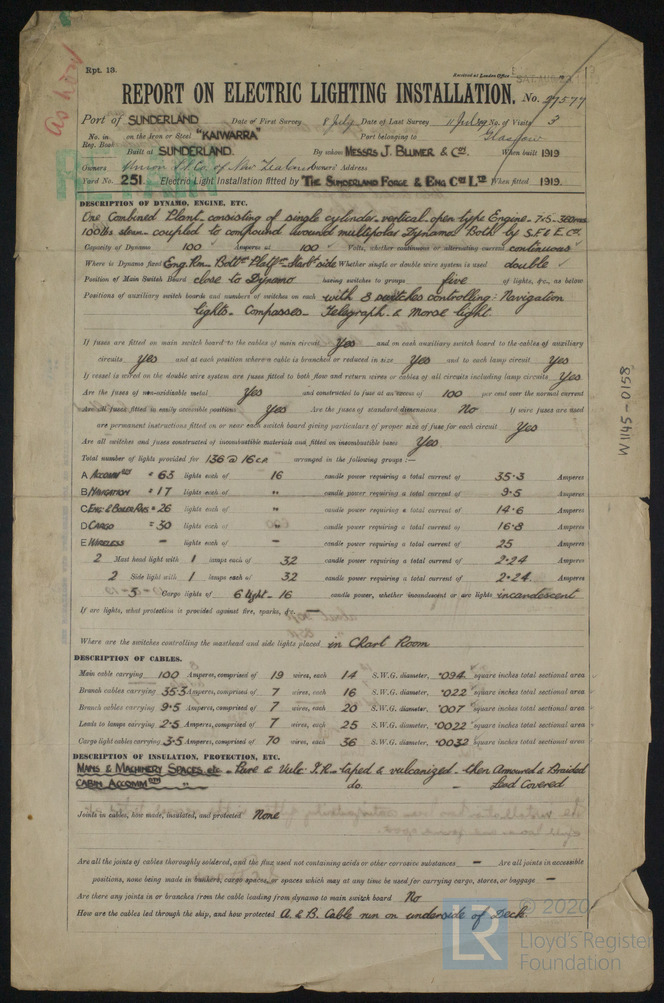 Rpt. 13.
Received at London Office
REPORT ON ELECTRIC LIGHTING INSTALLATION. No. 27577
Port of SUNDERLAND Date of First Survey 8 July Date of Last Survey 11 July 19 No. of Visits 3
No. in Reg. Book on the Iron or Steel "KAIWARRA" Port belonging to Glasgow
Built at SUNDERLAND. By whom MESSRS J. BLUMER & Co. When built 1919
Owners Union S.S. Co. of New Zealand Owners' Address
Yard No. 251. Electric Light Installation fitted by THE SUNDERLAND FORGE & ENG Co LTD When fitted 1919.
DESCRIPTION OF DYNAMO, ENGINE, ETC.
One Combined Plant consisting of single cylinder vertical open type Engine - 7x5 - 360
100 lbs steam - coupled to compound wound multipolar Dynamo Both by S.F. & E. Co.
Capacity of Dynamo 100 Amperes at 100 Volts, whether continuous or alternating current continuous
Where is Dynamo fixed Eng. Rm. Bottm Platfm Starbd side Whether single or double wire system is used double
Position of Main Switch Board close to Dynamo having switches to groups five of lights, &c., as below
Positions of auxiliary switch boards and numbers of switches on each with 8 switches controlling: Navigation
lights - Compasses - Telegraph. & Morse light
If fuses are fitted on main switch board to the cables of main circuit Yes and on each auxiliary switch board to the cables of auxiliary
circuits Yes and at each position where a cable is branched or reduced in size Yes and to each lamp circuit Yes
If vessel is wired on the double wire system are fuses fitted to both flow and return wires or cables of all circuits including lamp circuits Yes
Are the fuses of non-oxidizable metal Yes and constructed to fuse at an excess of 100 per cent over the normal current
Are all fuses fitted in easily accessible positions Yes Are the fuses of standard dimensions No If wire fuses are used
are permanent instructions fitted on or near each switch board giving particulars of proper size of fuse for each circuit Yes
Are all switches and fuses constructed of incombustible materials and fitted on incombustible bases Yes
Total number of lights provided for 136 @ 16 C.P. arranged in the following groups :—
A ACCOMMDTN = 63 lights each of 16 candle power requiring a total current of 35.3 Amperes
B NAVIGATION = 17 lights each of " candle power requiring a total current of 9.5 Amperes
C ENG. & BOILER RMS = 26 lights each of " candle power requiring a total current of 14.6 Amperes
D CARGO = 30 lights each of " candle power requiring a total current of 16.8 Amperes
E WIRELESS - lights each of - candle power requiring a total current of 25 Amperes
2 Mast head light with 1 lamps each of 32 candle power requiring a total current of 2.24 Amperes
2 Side light with 1 lamps each of 32 candle power requiring a total current of 2.24 Amperes
5 Cargo lights of 6 light - 16 candle power, whether incandescent or arc lights incandescent
If arc lights, what protection is provided against fire, sparks, &c.
Where are the switches controlling the masthead and side lights placed in Chart Room
DESCRIPTION OF CABLES.
Main cable carrying 100 Amperes, comprised of 19 wires, each 14 S.W.G. diameter, .094 square inches total sectional area
Branch cables carrying 35.3 Amperes, comprised of 7 wires, each 16 S.W.G. diameter, .022 square inches total sectional area
Branch cables carrying 9.5 Amperes, comprised of 7 wires, each 20 S.W.G. diameter, .007 square inches total sectional area
Leads to lamps carrying 2.5 Amperes, comprised of 7 wires, each 25 S.W.G. diameter, .0022 square inches total sectional area
Cargo light cables carrying 3.5 Amperes, comprised of 70 wires, each 36 S.W.G. diameter, .0032 square inches total sectional area
DESCRIPTION OF INSULATION, PROTECTION, ETC.
MAINS & MACHINERY SPACES etc - Pure & Vulc. I.R. taped & vulcanized - then Armoured & Braided
CABIN ACCOMMDTN " do - Lead Covered
Joints in cables, how made, insulated, and protected None
Are all the joints of cables thoroughly soldered, and the flux used not containing acids or other corrosive substances - Are all joints in accessible
positions, none being made in bunkers, cargo spaces, or spaces which may at any time be used for carrying cargo, stores, or baggage -
Are there any joints in or branches from the cable leading from dynamo to main switch board No
How are the cables led through the ship, and how protected A. & B. Cable run on underside of Deck
W1145-0158
© 2020
LR
Lloyd's Register
Foundation